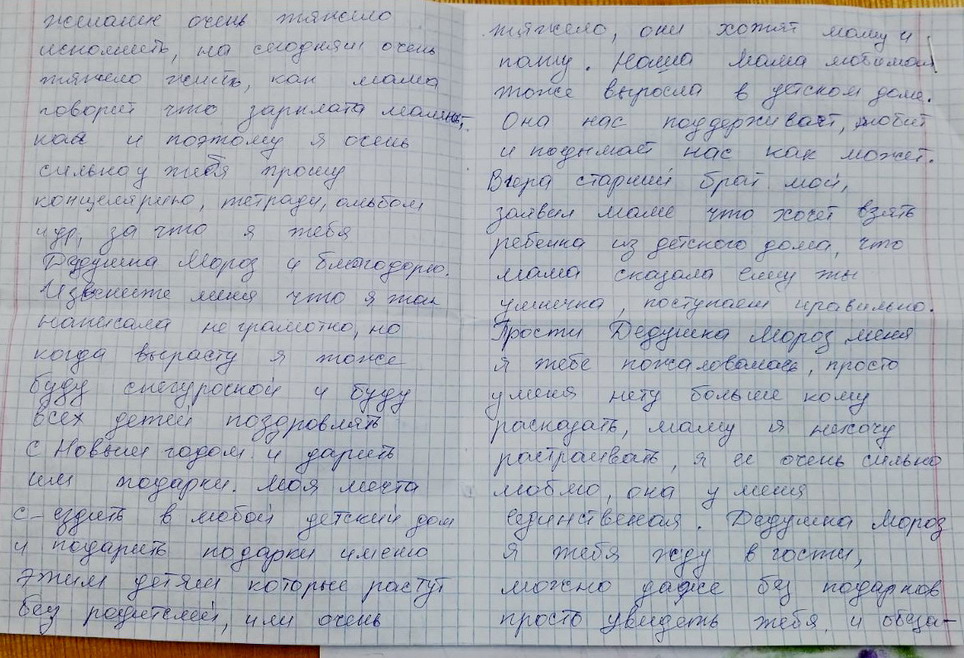 желание очень тяжело
исполнить, на сегодняш очень
тяжело жить, как мама
говорит что зарплата малень,
кая и поэтому я очень
сильно у тебя прошу
концелярию, тетради, альбом
и др, за что я тебя
Дедушка Мороз и благодорю.
Извените меня что я так
написала не грамотно, но
когда вырасту я тоже
буду снегурочкой и буду
всех детей поздровлять
с Новым годом и дарить
им подарки. Моя мечта
с-ездить в любой детский дом
и подарить подарки имено
этим детям которые растут
без родителей, или очень
тяжело, они хотят маму и
папу. Наша мама любимая
тоже выросла в детском доме.
Она нас поддерживает, любит
и подымает нас как может.
Вчера старший брат мой,
заявил маме что хочет взять
ребенка из детского дома, что
мама сказала ему ты
умничка, поступаеш правильно.
Прости Дедушка Мороз меня
я тебе пожаловалась, просто
у меня нету больше кому
расказать, маму я нехочу
растраивать, я ее очень сильно
люблю, она у меня
единственая. Дедушка Мороз
я тебя жду в гости,
можно даже без подарков
просто увидеть тебя, и обеща-